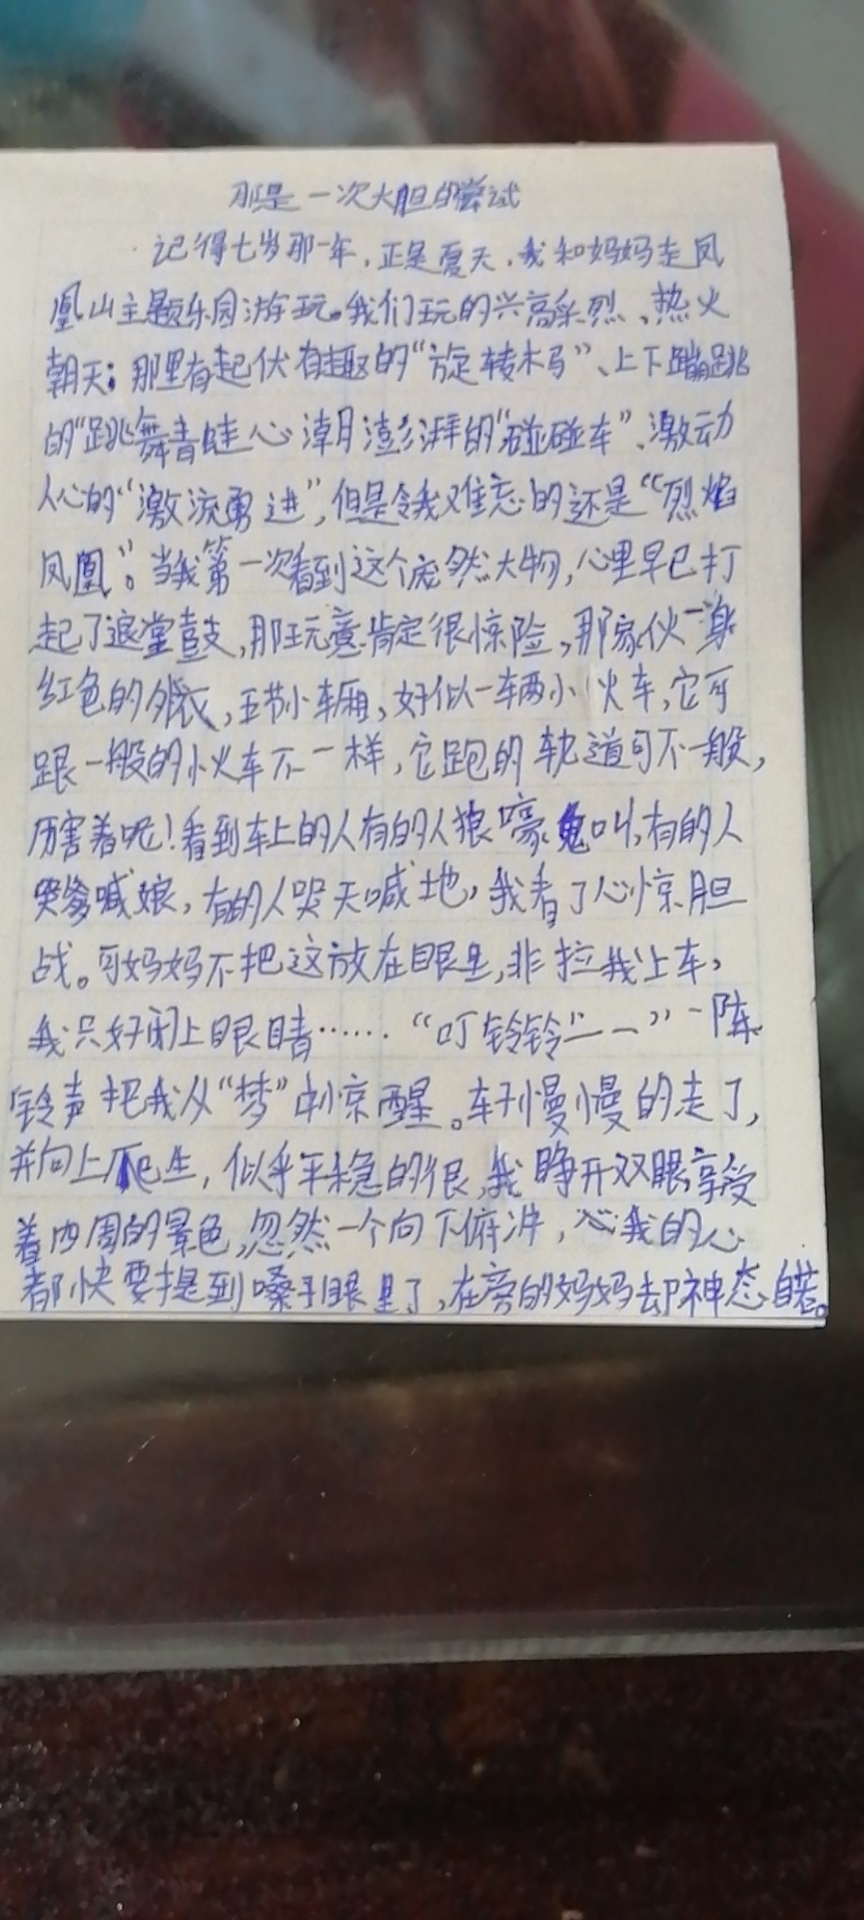 那是一次大胆的尝试
记得七岁那一年，正是夏天，我和妈妈走凤
凰山主题乐园游玩。我们玩的兴高采烈、热火
朝天：那里有起伏有趣的“旋转木马”、上下蹦跳
的“跳舞青蛙心潮澎湃的“碰碰车”、激动
人心的“激流勇进”，但是令我难忘的还是“烈焰
凤凰”。当我第一次看到这个庞然大物，心里早已打
起了退堂鼓，那玩意肯定很惊险，那家伙一身
红色的外衣，五节小车厢，好似一车两小火车，它可
跟一般的小火车不一样，它跑的轨道可不一般，
厉害着呢！看到车上的人有的人狼嚎鬼叫，有的人
哭爹喊娘，有的人哭天喊地，我看了心惊胆
战。可妈妈不把这放在眼里，非拉我上车，
我只好闭上眼睛……“叮铃铃——”一阵
铃声把我从“梦”中惊醒。车子慢慢的走了，
并向上爬生，似乎平稳的很，我睁开双眼享受
着四周的景色，忽然一个向下俯冲，我的心
都快要提到嗓子眼里了，在旁的妈妈却神态自若。